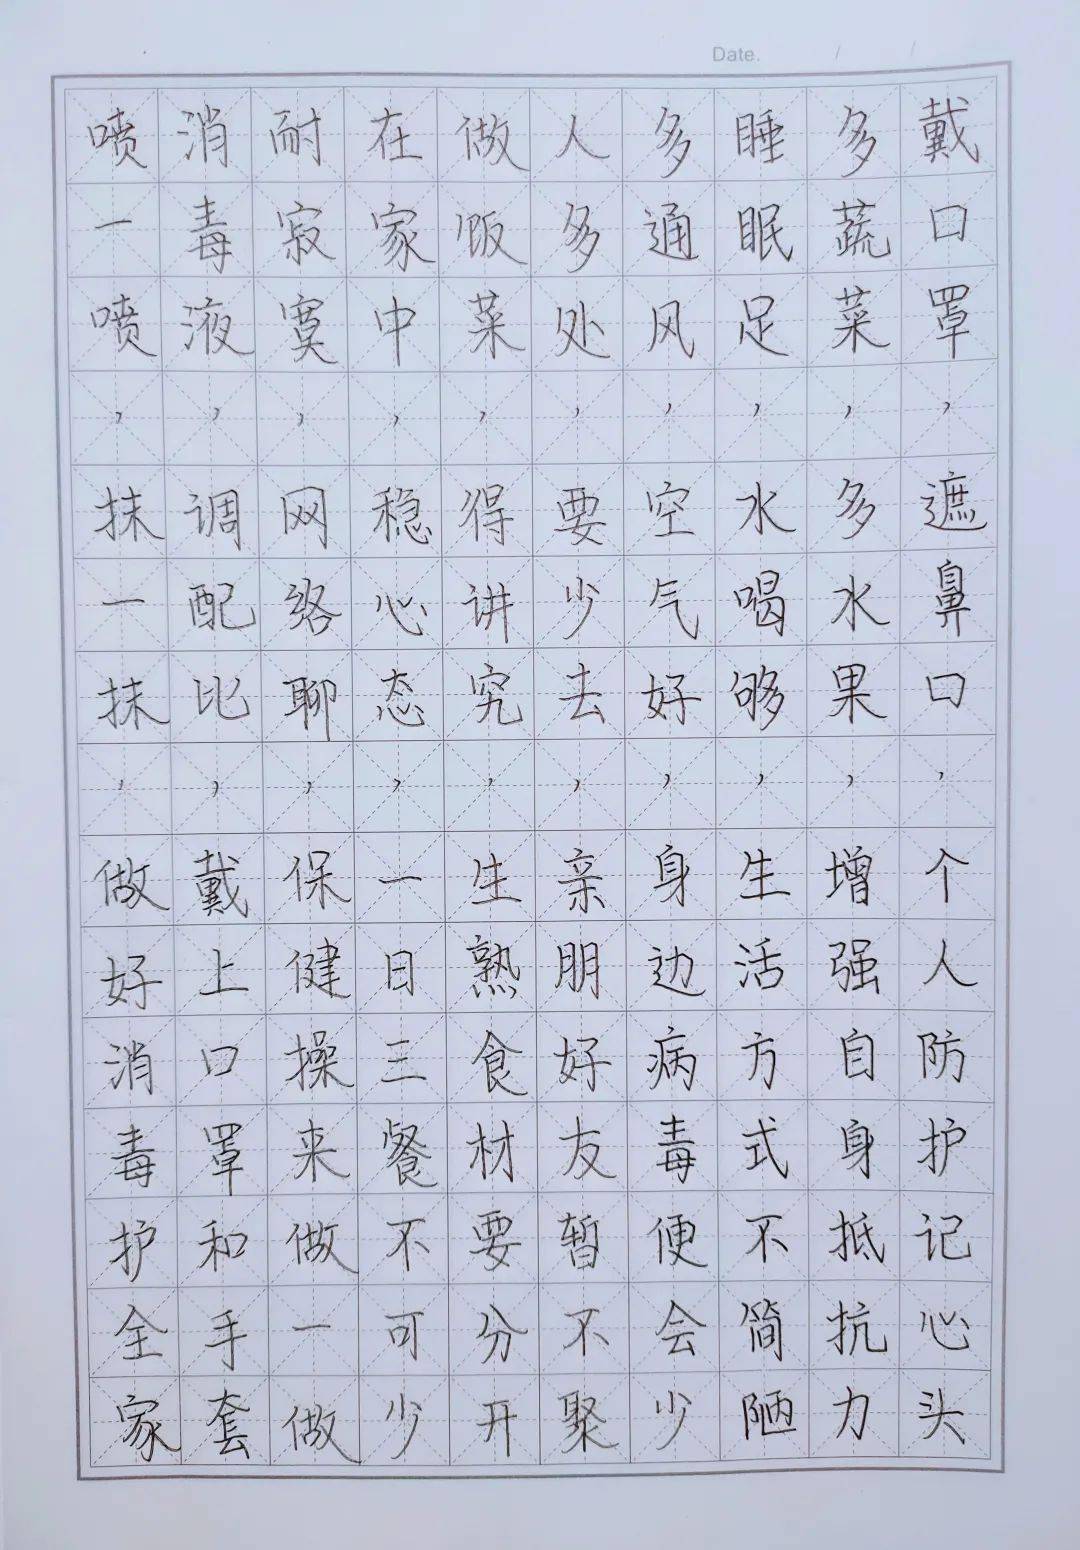 Date. / /
戴口罩，遮鼻口，个人防护记心头
多蔬菜，多水果，增强自身抵抗力
睡眠足，水喝够，生活方式不简陋
多通风，空气好，身边病毒便会少
人多处，要少去，亲朋好友暂不聚
做饭菜，得讲究，生熟食材要分开
在家中，稳心态，一日三餐不可少
耐寂寞，网络聊，保健操来做一做
消毒液，调配比，戴上口罩和手套
喷一喷，抹一抹，做好消毒护全家